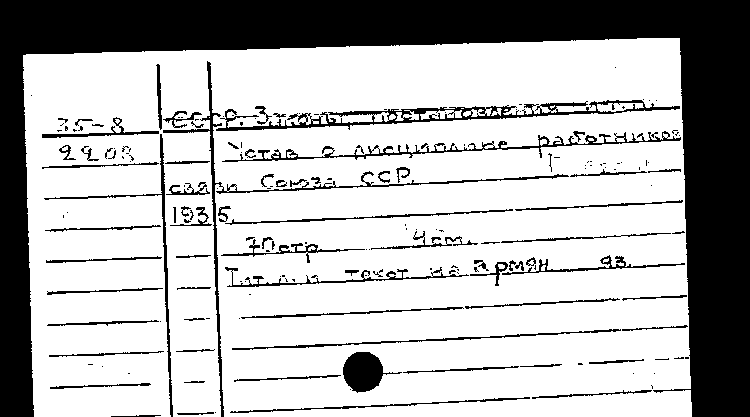 35-8 СССР. Законы, постановления и т.п.
2208 Устав о дисциплине работников
связи Союза ССР.
1935.
70стр. 4см.
Тит.л. и текст на армян. яз.